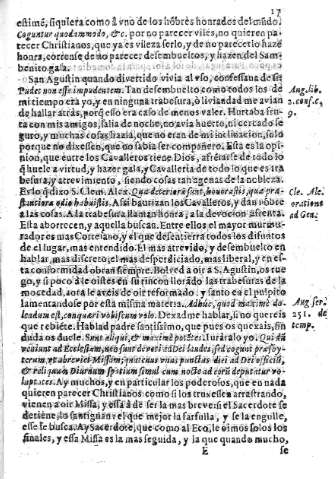 17
estimé, siquiera como à vno de los hõbres honrados del mũdo.
Coguntur quodammodo, &c. por no parecer viles, no quieren pa-
recer Christianos, que ya es vileza serlo, y de no parecerlo hazẽ
honra, correnſe de no parecer deſembueltos, y hazen del Sam-
benito gala.
San Aguſtin quando divertido vivia al vſo, confeſſaua de ſi:
Pudet non eſſe impudentem. Tan deſembuelto como todos los de
mi tiempo era yo, y en ninguna traveſura, ò liviandad me avian
de hallar atràs, porq̃ eſſo era caſo de menos valer. Hurtaba fru-
ta con mis amigos, ſalia de noche, no avia huerto, ni cercado ſe
guro, y muchas coſas hazia, que no eran de mi inclinacion, ſolo
porque no dixeſſen, que no ſabia ſer compañero. Eſta es la opi-
nion, que entre los Cavalleros tiene Dios, afrẽtarſe de todo lo
q̃ huele à virtud, y hazer gala, y Cavalleria de todo lo que es tra
beſura, y atrevimiento, ſiendo coſas tan agenas de la nobleza.
Es lo q̃ dizo S. Clem. Alex. Quæ deteriora ſint, honeſtis, quæ præ-
ſtantiora odio habuiſtis. Aſsi bautizan los Cavalleros, y dan nõbre
à las coſas. A la trabeſura llaman honra, à la devocion afrenta.
Eſta aborrecen, y aquella buſcan. Entre ellos el mayor murmu-
rador es mas Corteſano, y el que deſentierra todos los difuntos
de el lugar, mas entendido. El mas atrevido, y deſembuelto en
hablar, mas diſcreto, el mas deſperdiciado, mas liberal, y en eſ-
ta conformidad obran ſiempre. Bolved à oìr à S. Aguſtin, os rue
go, y ſi poco à le oìſtes en ſu rincon llorãdo las trabeſuras de la
mocedad, aora le aveis de oìr reformado, y ſanto en el pulpito
lamentandoſe por eſta miſma materia. Adhuc, quod maximè do-
lendum eſt, conqueri vobiſcum volo. Dexadme hablar, ſi no quereis
que rebiẽte. Hablad padre ſantiſsimo, que pues os quexais, ſin
duda os duele. Sunt aliqui, & maximè potẽtes. Iuraràlo yo. Qui dũ
veniunt ad Eccleſiam, non ſunt devoti ad Dei laudes, ſed cogunt præſby-
terum, vt abreviet Miſſam;
& reliquum Diurnum ſpatium ſimul cum nocte ad eoru deputatur vo-
luptates. Ay muchos, y en particular los poderoſos, que en nada
quieren parecer Chriſtianos como ſi los truxeſſen arraſtrando,
vienen à oìr Miſſa, y eſſa à de ſer la mas breve: ſi el Sacerdote ſe
detiene, lo ſantiguan: el que mejor la farfulla, y ſe la engulle,
eſſe ſe buſca. Ay Sacerdote, que como al Eco, le oìmos ſolos los
finales, y eſſa Miſſa es la mas ſeguida, y la que quando mucho,
E ſe
Aug. lib.
2. conf. c.
9.
Cle. Ale.
ad Gra.
Aug ſer.
251. de
temp.